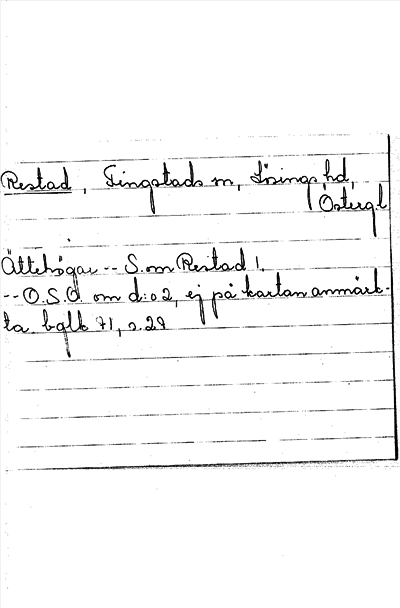 Restad, Tingstads sn, Lösings hd,
Östergl
Ättehögar -- S. om Restad 1.
-- O.S.O om d:o 2, ej på kartan anmärk-
ta. bglb 71, s. 29